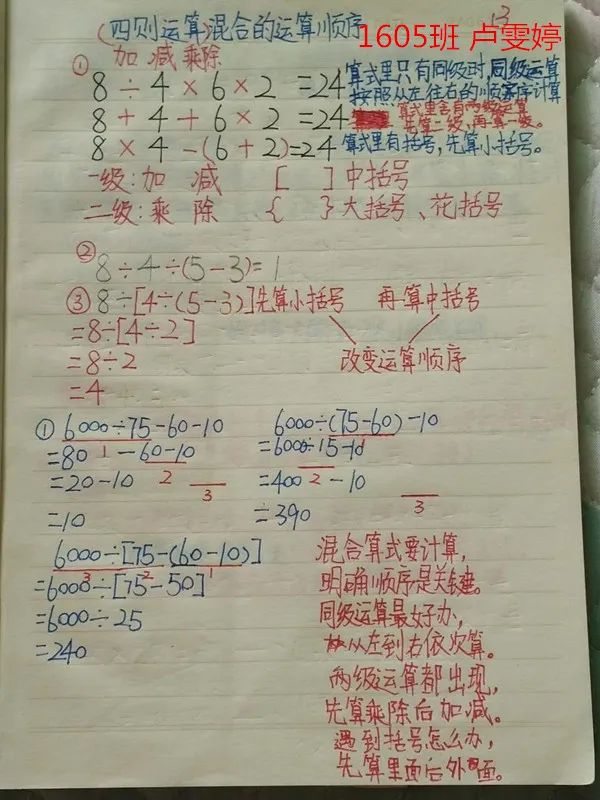 13
(四则运算)混合的运算顺序
1605班 卢雯婷
加减乘除
① 8÷4×6×2=24 算式里只有同级时,同级运算
按照从左往右的顺序计算
8+4+6×2=24 算式里含有两级运算
先算二级,再算一级。
8×4-(6+2)=24 算式里有括号,先算小括号。
一级:加 减 [ ]中括号
二级:乘 除 { }大括号、花括号
②
8÷4÷(5-3)=1
③ 8÷[4÷(5-3)]先算小括号 再算中括号
=8÷[4÷2]
=8÷2 改变运算顺序
=4
① 6000÷75-60-10 6000÷(75-60)-10
=80 1 -60-10 =6000÷15-10 1
=20-10 2 3 =400 2 -10 3
=10 =390
6000÷[75-(60-10)]
3 2 1
=6000÷[75-50]
=6000÷25
=240
混合算式要计算,
明确顺序是关键。
同级运算最好办,
从左到右依次算。
两级运算都出现,
先算乘除后加减。
遇到括号怎么办,
先算里面后外面。